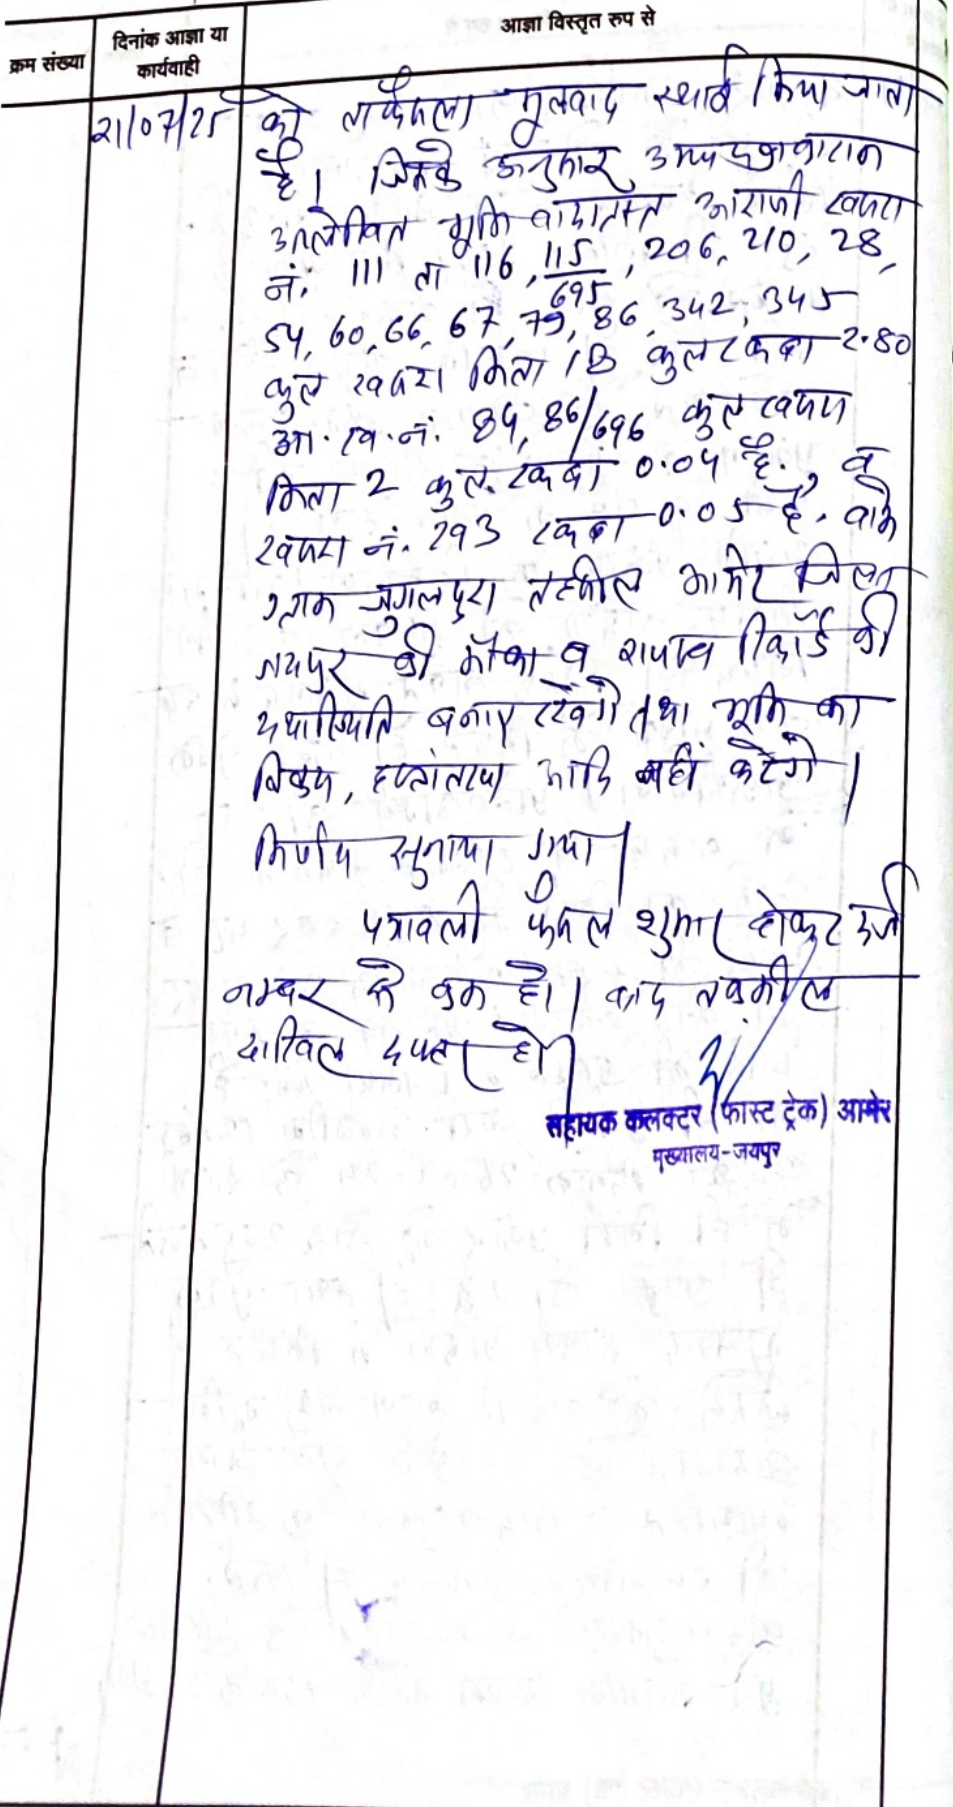 आज्ञा विस्तृत रुप से
क्रम संख्या
दिनांक आज्ञा या
कार्यवाही
21/07/25
को ताफैसला मूलवाद स्थाई किया जाता
है। जिसके अनुसार उभयपक्षकारान
उल्लेखित भूमि वादग्रस्त आराजी खसरा
नं. 111 ता 116, 115/695, 206, 210, 28,
54, 60, 66, 67, 79, 86, 342, 345
कुल खसरा किता 18 कुल रकबा 2.80
आ. ख. नं. 84, 86/696 कुल खसरा
किता 2 कुल रकबा 0.04 है., व
खसरा नं. 293 रकबा 0.05 है. वाके
ग्राम जुगलपुरा तहसील आमेर जिला
जयपुर की मौका व राजस्व रिकॉर्ड की
यथास्थिति बनाए रखेंगे तथा भूमि का
विक्रय, हस्तांतरण आदि नहीं करेंगे।
निर्णय सुनाया गया।
पत्रावली फैसल शुमार होकर दर्ज
नम्बर से कम हो। बाद तकमील
दाखिल दफ्तर हो।
सहायक कलक्टर (फास्ट ट्रेक) आमेर
मुख्यालय-जयपुर